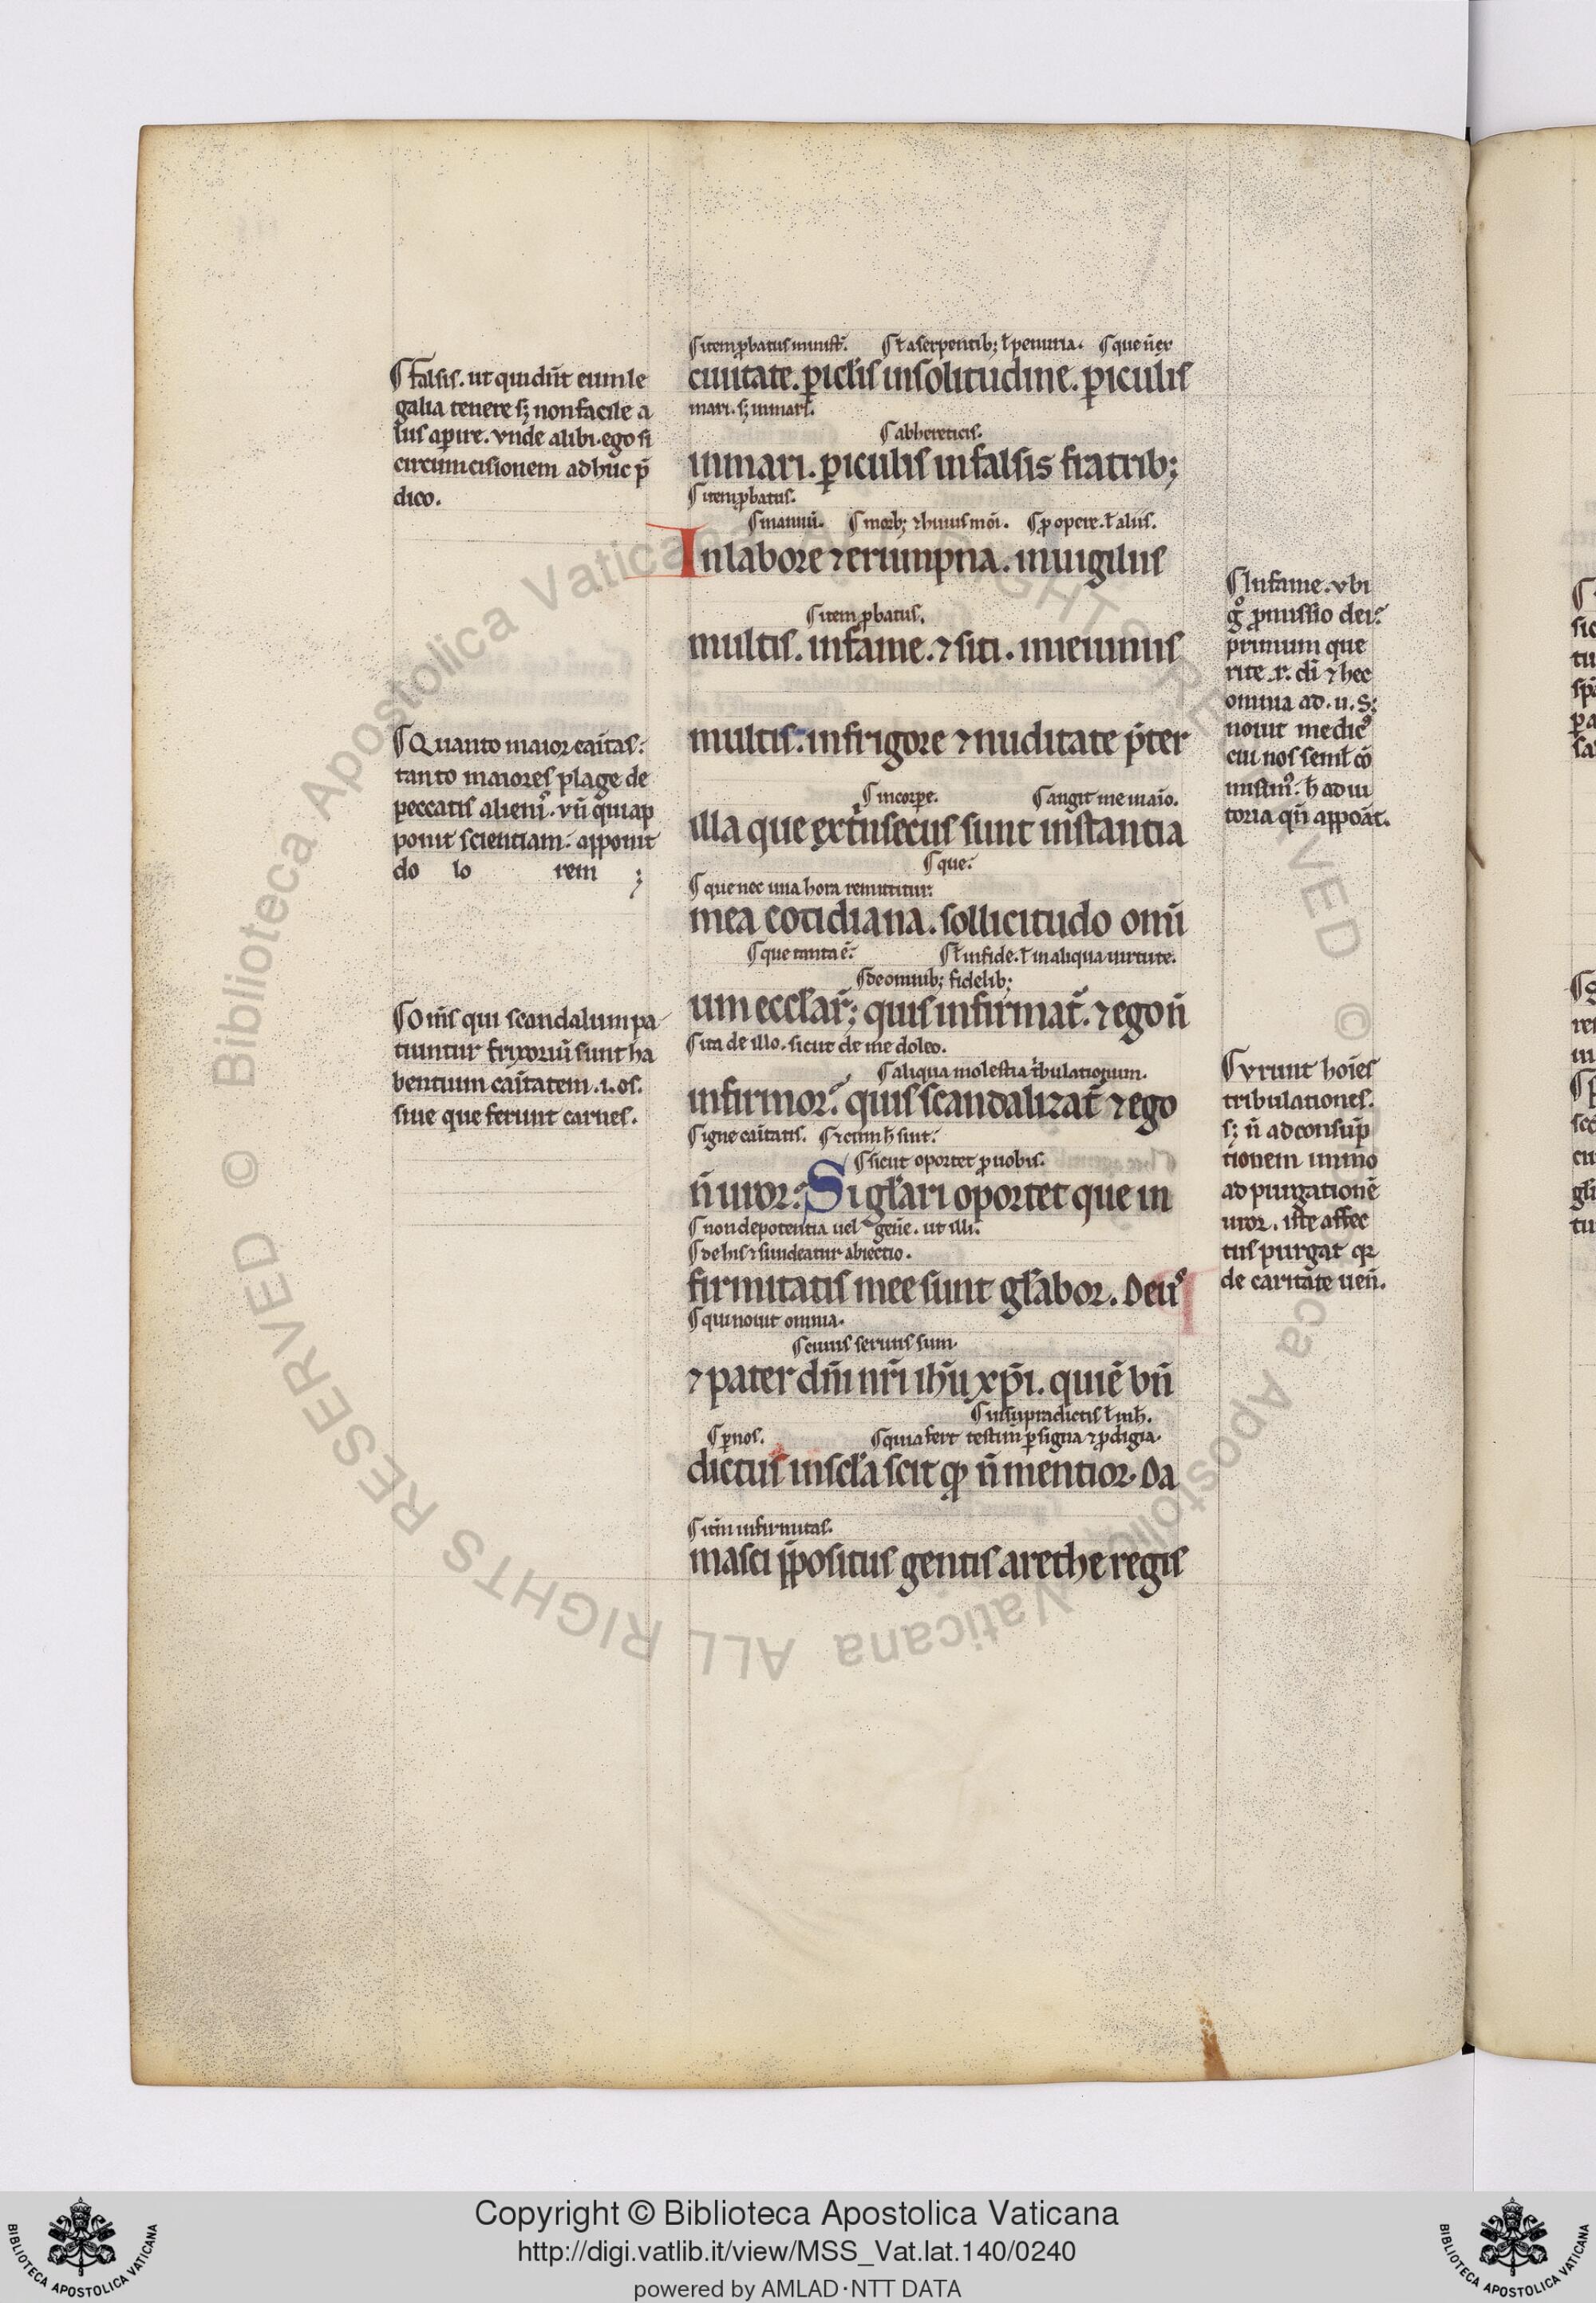 ¶ Falsis. ut qui dn̄t eum le
galia tenere sꝫ non facile a
lus aꝑire. vnde alibi. ego si
circumcisionem ad huc p̄
dico.
¶ Quanto maior car̄itas:
tanto maiores plage de
peccatis alienis. vn̄ qui ap
ponit scientiam: apponit
do lo rem ;
¶ Om̄s qui scandalum pa
tiuntur frixoriū sunt ha
bentium car̄itatem .i. os.
siue que ferunt carnes.
¶ item ꝓbatus ministr̄. ¶ ł a serpentibꝫ ł penuria. ¶ que n̄ er
ciuitate. ꝑiclis in solitudine. ꝑiculis
mari. sꝫ in mari.
¶ ab hereticis.
in mari. ꝑiculis in falsis fratribꝫ
¶ item ꝓbatus.
¶ manuū. ¶ morbꝫ ⁊ huius mōi. ¶ ꝓ opere. ł aliis.
In labore ⁊ erumpna. in uigiliis
¶ item ꝓbatus.
multis. in fame. ⁊ siti. in ieiuniis
multis. in frigore ⁊ nuditate p̄ter
¶ in corꝑe. ¶ angit me maio.
illa que extrinsecus sunt instantia
¶ que:
¶ que nec una hora remittitur:
mea cotidiana. sollicitudo omni
¶ que tanta ē: ¶ ł in fide. ł in aliqua uirtute.
¶ de omnibꝫ fidelibꝫ
um eccl̄ar̄; quis infirmat̄. ⁊ ego n̄
¶ ita de illo. sicut de me doleo.
¶ aliqua molestia tribulationum.
infirmor: quis scandalizat̄ ⁊ ego
¶ igne car̄itatis. ¶ ⁊ cum h̄ sint:
¶ sicut oportet ꝓ uobis.
n̄ uror: Si gl̄ari oportet que in
¶ non de potentia uel gene. ut illi.
¶ de his ⁊ si uideatur abiectio.
firmitatis mee sunt gl̄abor. Deus
¶ qui nouit omnia.
¶ cuius seruus sum.
⁊ pater dn̄i nr̄i ih̄u xp̄i. qui ē bn̄
¶ in supradictis ł in h̄.
¶ ꝑ nos. ¶ quia fert testim̄ ꝑ signa ⁊ ꝓdigia.
dictus in scl̄a scit qꝫ n̄ mentior. Da
¶ itm̄ infirmitas.
masci p̄positus gentis arethe regis
¶ In fame. vbi
gͦ ꝓmissio dei:
primum que
rite .r. di ⁊ hec
omnia ad. u. S;
nouit medic⁹
cui nos semł cō
misim⁹. h̄ adiu
toria qn̄ appoāt.
¶ vrunt hoīes
tribulationes.
sꝫ n̄ ad consūp
tionem immo
ad purgationē
uror. iste affec
tus purgat qꝛ
de caritate uen̄.
Copyright © Biblioteca Apostolica Vaticana
http://digi.vatlib.it/view/MSS_Vat.lat.140/0240
powered by AMLAD·NTT DATA
BIBLIOTECA APOSTOLICA VATICANA
BIBLIOTECA APOSTOLICA VATICANA
© Biblioteca Apostolica Vaticana ALL RIGHTS RESERVED
© Biblioteca Apostolica Vaticana ALL RIGHTS RESERVED